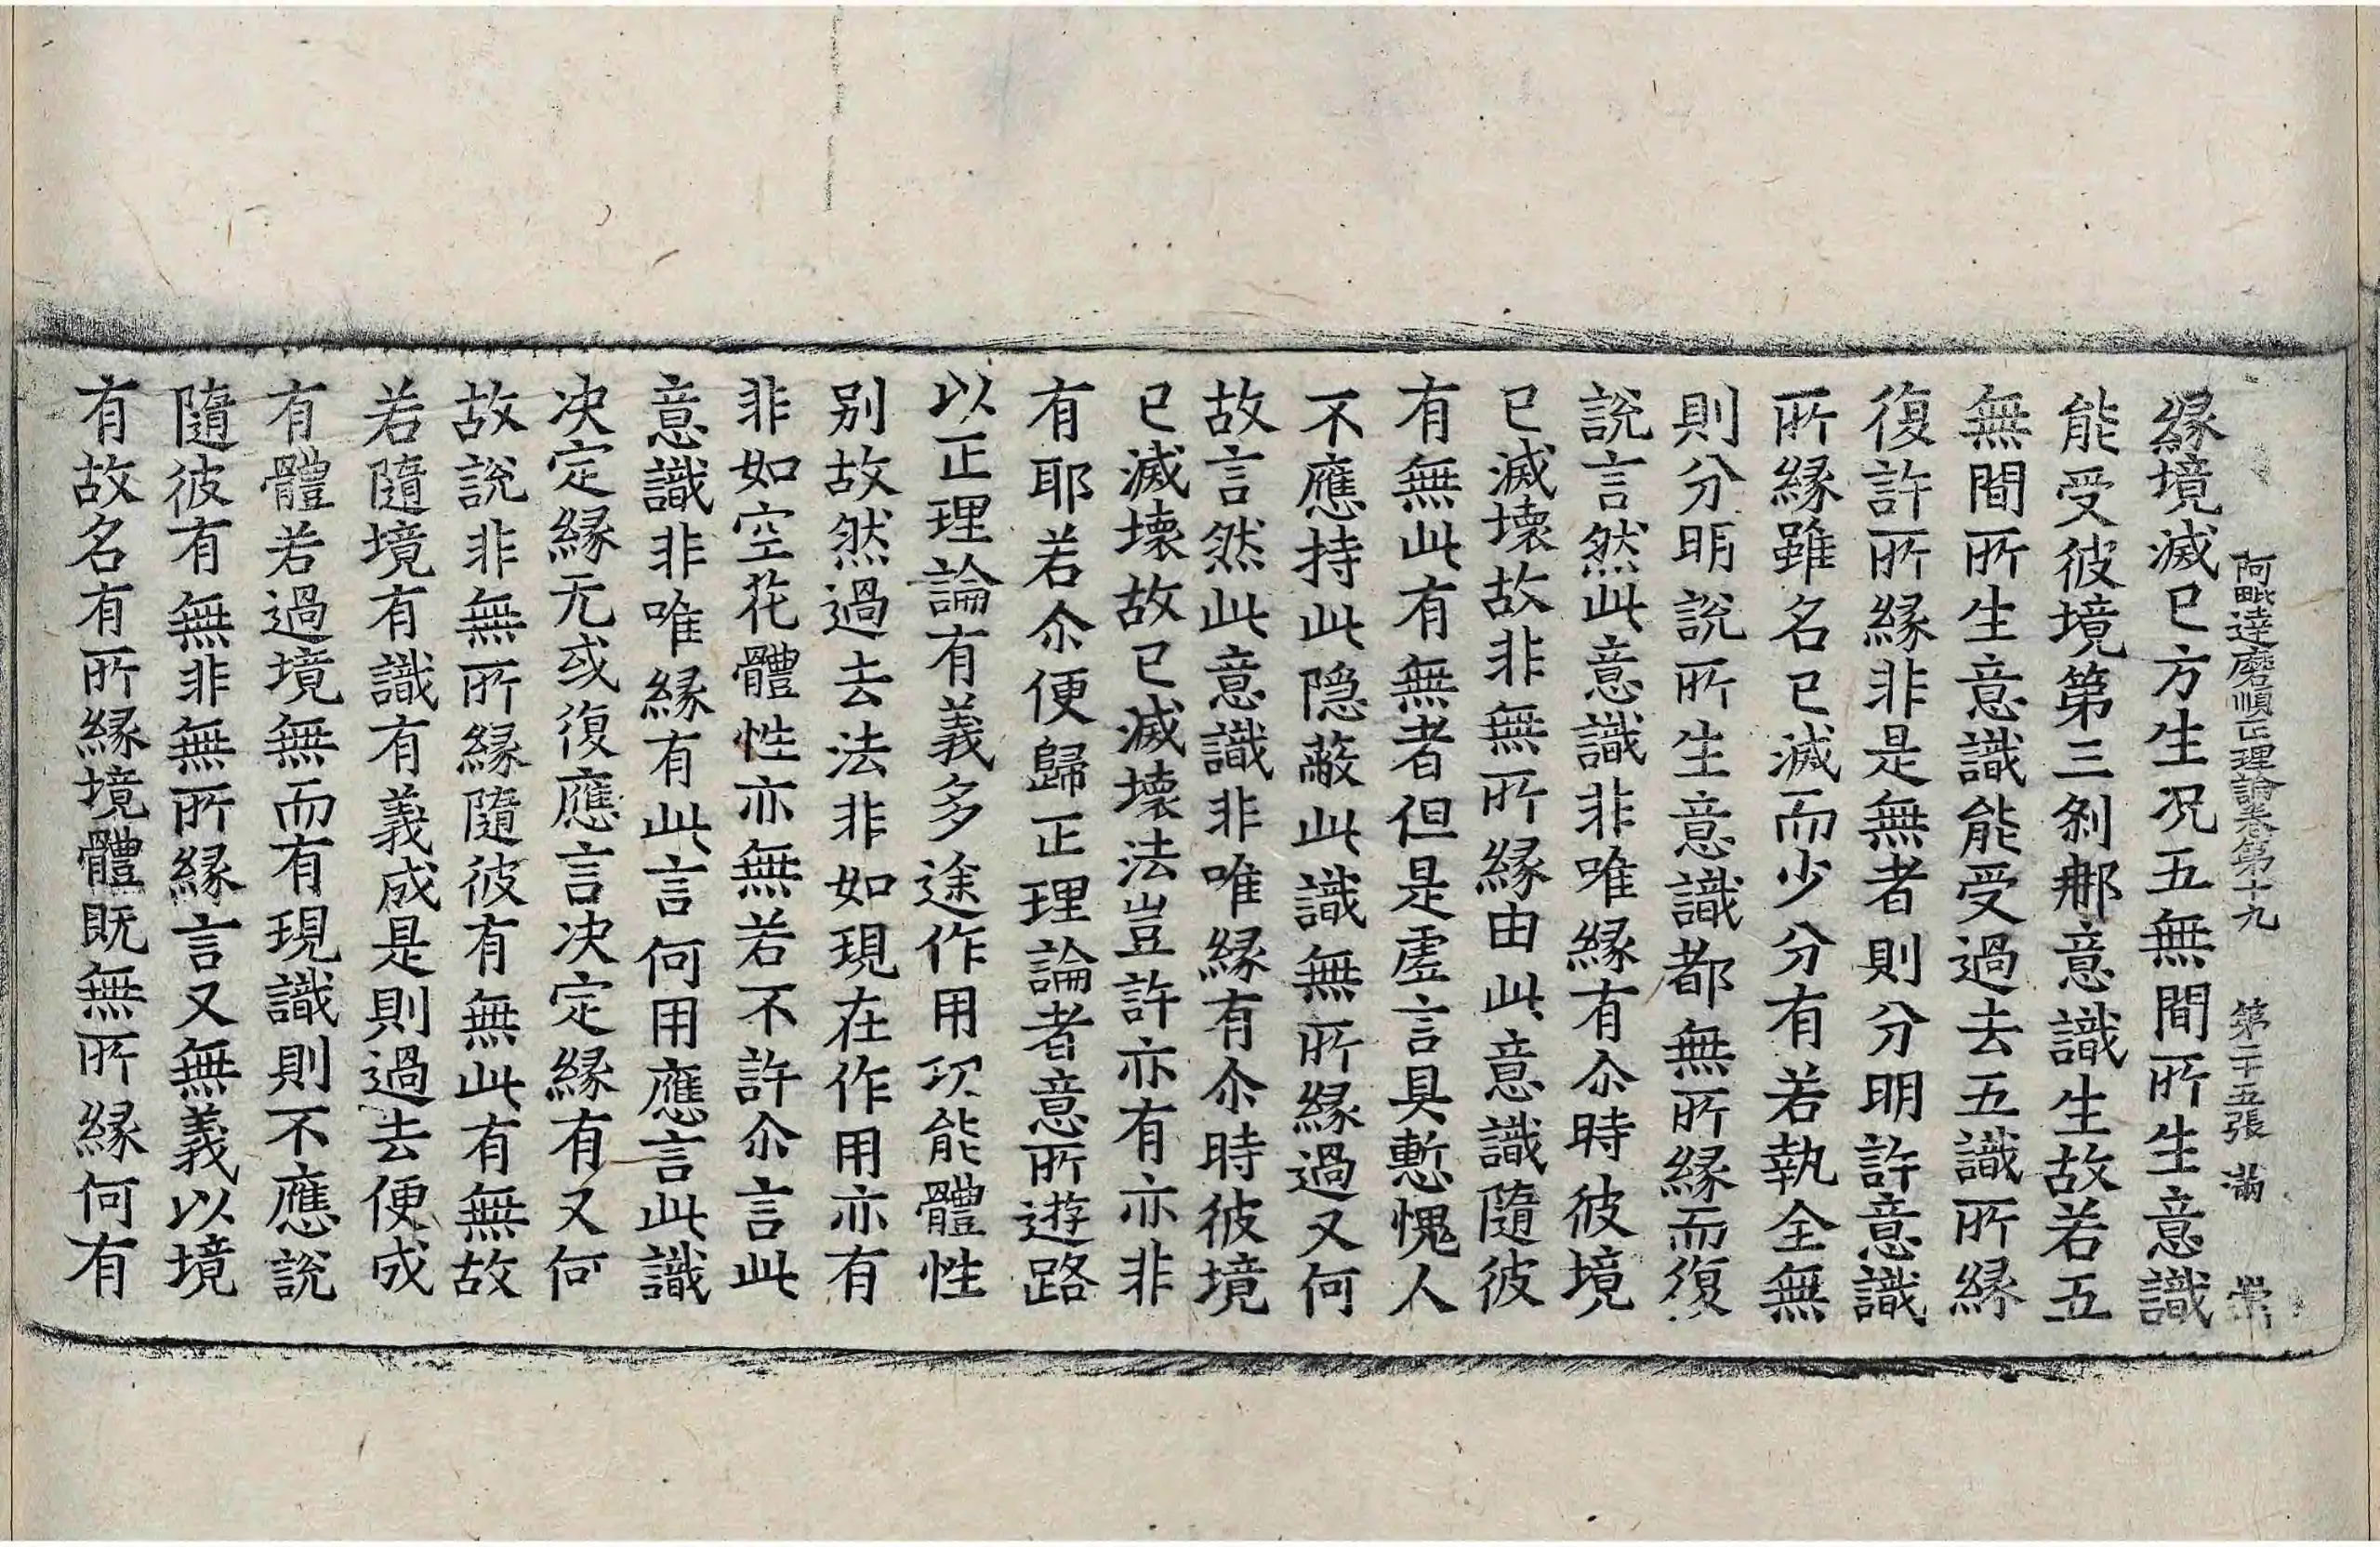 阿毗達磨順正理論卷第十九　第二十五張　滿　崇
緣境滅已方生况五無間所生意識
能受彼境第三刹那意識生故若五
無間所生意識能受過去五識所緣
復許所緣非是無者則分明許意識
所緣雖名已滅而少分有若執全無
則分明說所生意識都無所緣而復
說言然此意識非唯緣有尒時彼境
已滅壞故非無所緣由此意識隨彼
有無此有無者但是虛言具慙愧人
不應持此隱蔽此識無所緣過又何
故言然此意識非唯緣有尒時彼境
已滅壞故已滅壞法豈許亦有亦非
有耶若尒便歸正理論者意所遊路
以正理論有義多途作用功能體性
別故然過去法非如現在作用亦有
非如空花體性亦無若不許尒言此
意識非唯緣有此言何用應言此識
决定緣无或復應言决定緣有又何
故說非無所緣隨彼有無此有無故
若隨境有識有義成是則過去便成
有體若過境無而有現識則不應說
隨彼有無非無所緣言又無義以境
有故名有所緣境體既無所緣何有